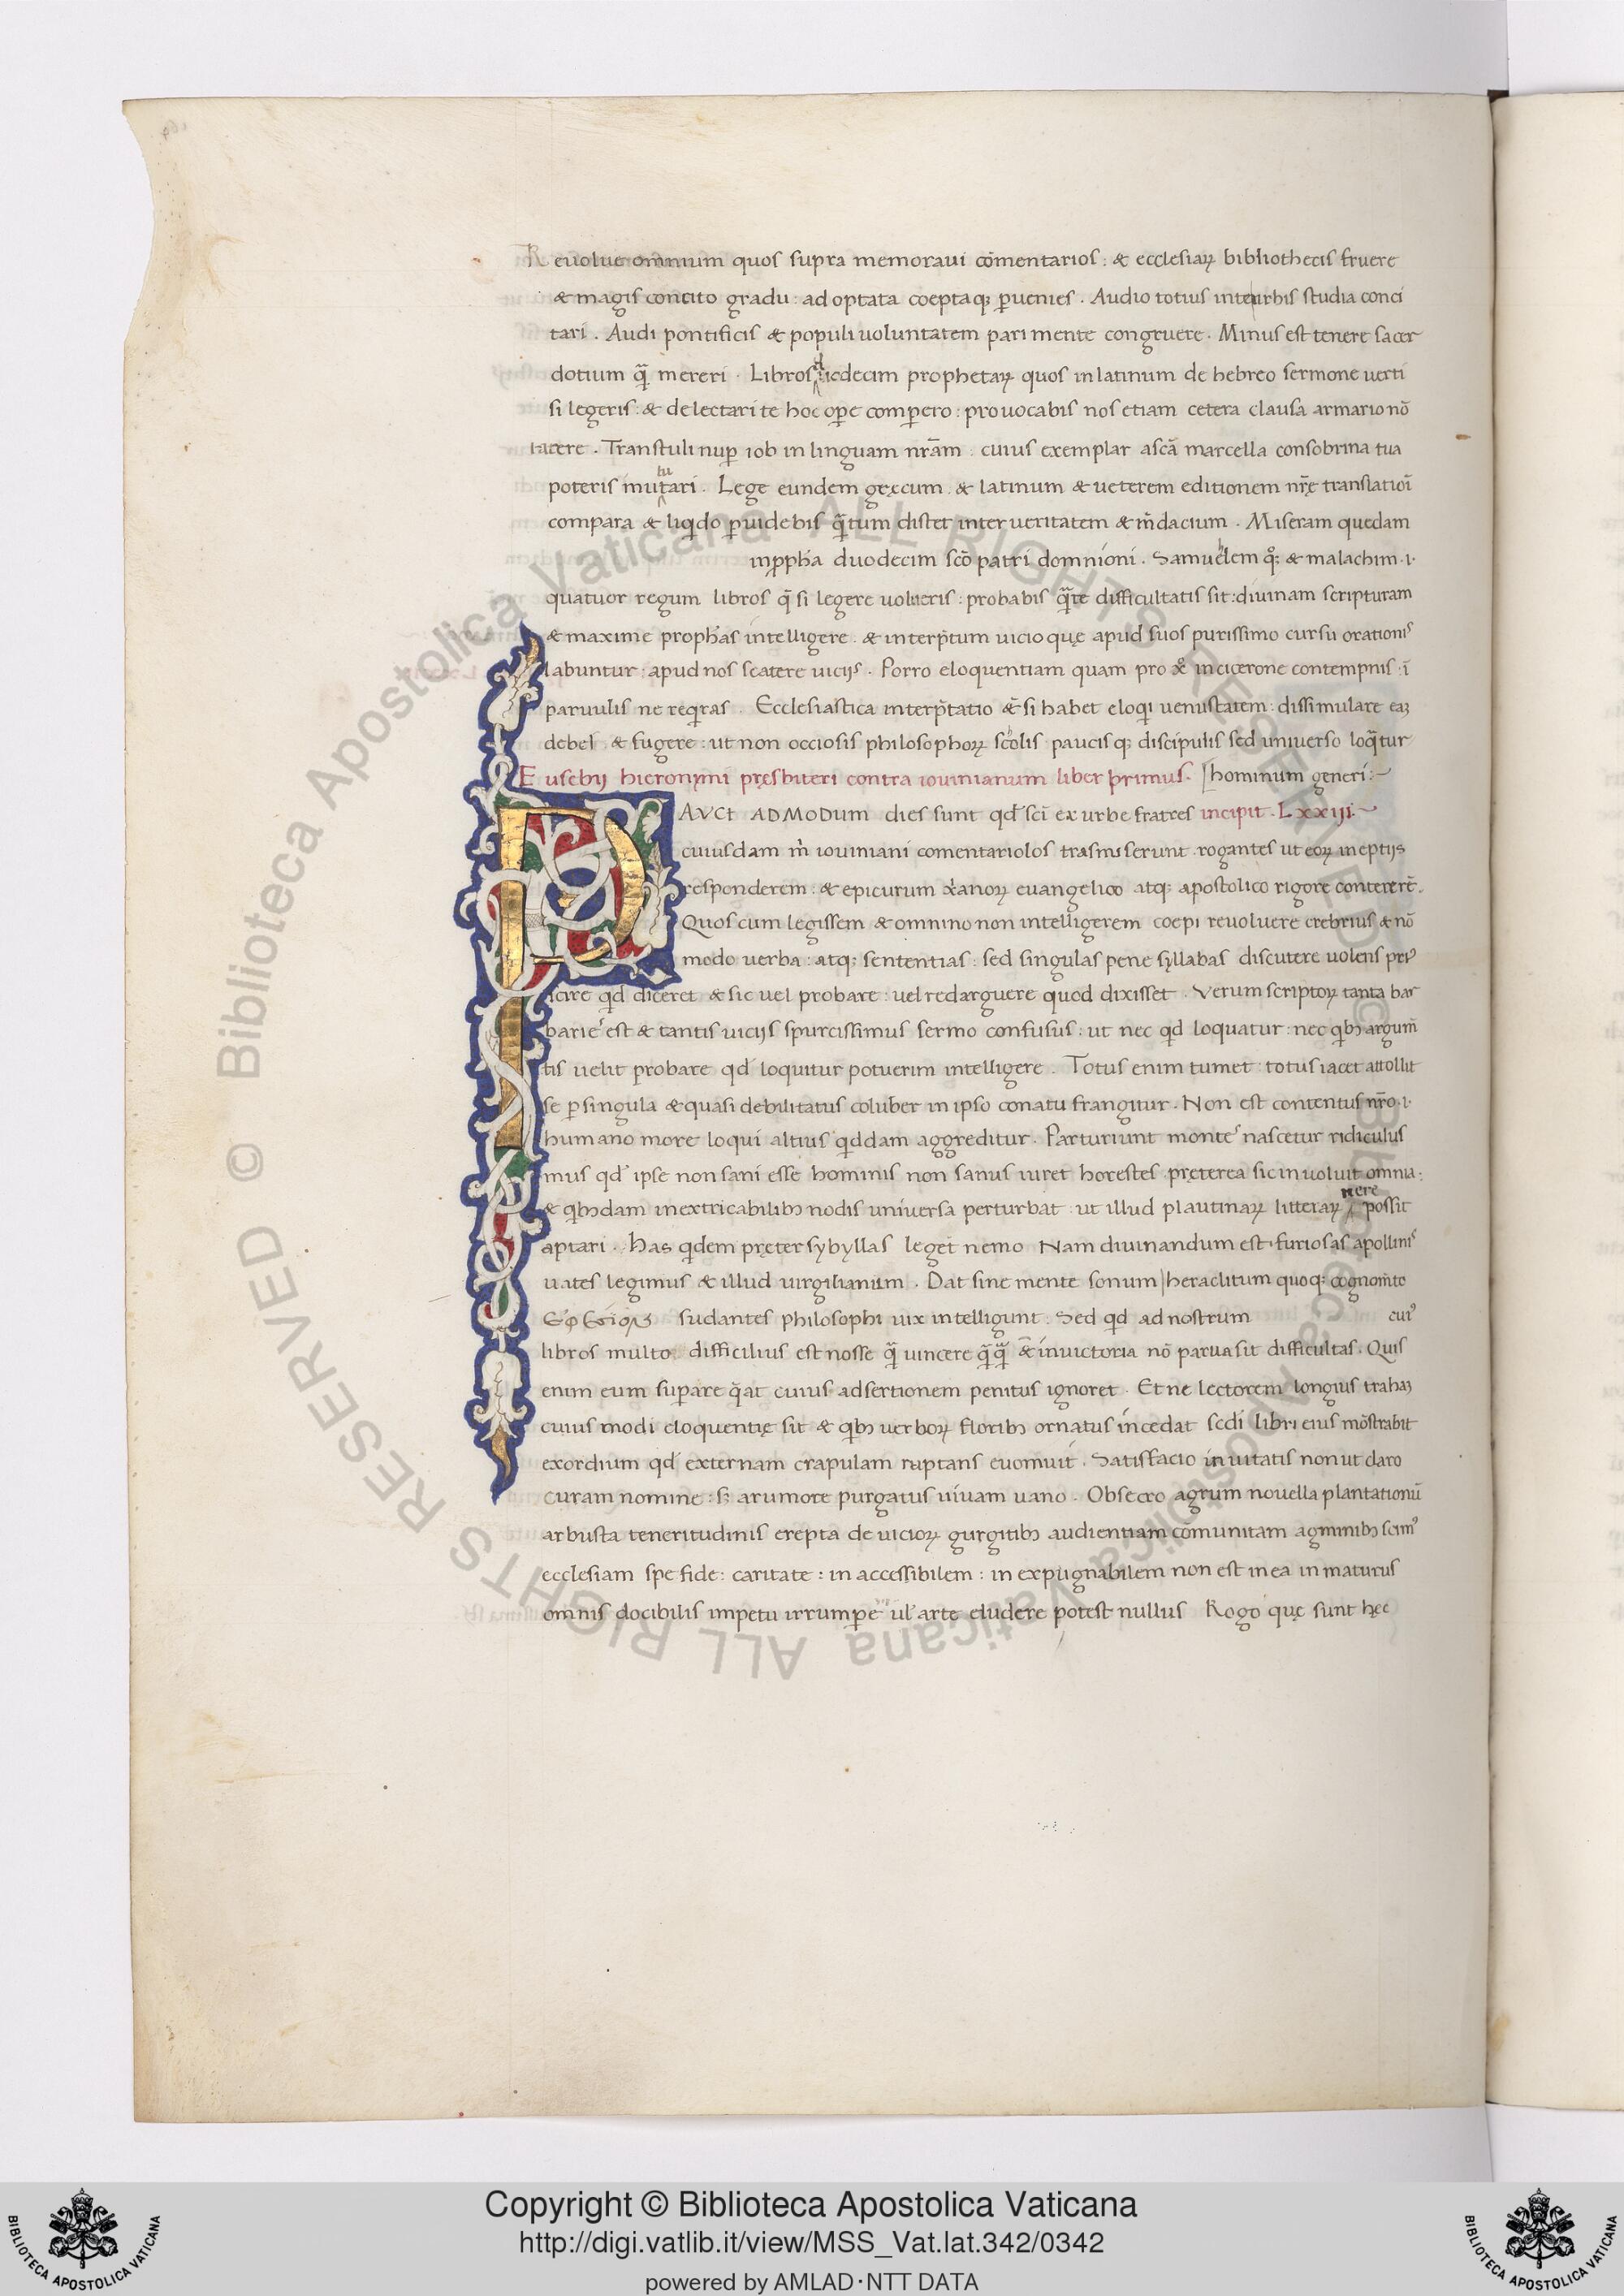 Reuolue omnium quos supra memoraui cōmentarios : & ecclesiaꝝ bibliothecis fruere
& magis concito gradu : ad optata coeptaqꝫ ꝑuenies . Audio totius inte urbis studia conci
tari . Audi pontificis & populi uoluntatem pari mente congruere . Minus est tenere sacer
dotium q̄ mereri . Libros decim prophetaꝝ quos in latinum de hebreo sermone uerti
si legeris : & delectari te hoc oꝑe comꝑero : prouocabis nos etiam cetera clausa armario nō
tacere . Transtuli nuꝑ iob in linguam nr̄am . cuius exemplar a scā marcella consobrina tua
poteris mutuari . Lege eundem gręcum & latinum & ueterem editionem nr̄ę translatiōi
compara & liqido ꝑuidebis q̄tum distet inter ueritatem & m̄dacium . Miseram quedam
in ꝓpha duodecim scō patri domnioni . Samuelem qͦꝫ & malachim .i.
quatuor regum libros q̄ si legere uolueris : probabis q̄te difficultatis sit : diuinam scripturam
& maxime prophās intelligere . & interp̄tum uicio quę apud suos purissimo cursu orationis
labuntur : apud nos scatere uicijs . Porro eloquentiam quam pro xͦ in cicerone contempnis : ī
paruulis ne reqiras . Ecclesiastica interp̄tatio &̄ si habet eloqi uenustatem : dissimulare eaꝫ
debet & fugere : ut non occiosis philosophoꝝ scolis paucisqꝫ discipulis sed uniuerso loq̄tur
Eusebij hieronymi pręsbiteri contra iouinianum liber primus . hominum generi :~
PAVCI ADMODum dies sunt qd̄ scī ex urbe fratres incipit . Lxxiij.~
cuiusdam m̄ iouiniani comentariolos trasmiserunt rogantes ut eoꝝ ineptijs
responderem . & epicurum xr̄anoꝝ euangelico atqꝫ apostolico rigore conterer̄ē .
Quos cum legissem & omnino non intelligerem coepi reuoluere crebrius & nō
modo uerba : atqꝫ sententias : sed singulas pene syllabas discutere uolens pri9
scire qd diceret & sic uel probare : uel redarguere quod dixisset . Verum scriptoꝝ tanta bar
baries est & tantis uicijs spurcissimus sermo confusus : ut nec qd loquatur : nec qibꝫ argum̄
tis uelit probare qd loquitur potuerim intelligere . Totus enim tumet : totus iacet attollit
se ꝑ singula & quasi debilitatus coluber in ipso conatu frangitur . Non est contentus nr̄o .i.
humano more loqui altius qiddam aggreditur . Parturiunt montes nascetur ridiculus
mus qd̄ ipse non sani esse hominis non sanus iuret horestes . pręterea sic inuoluit omnia :
& qibꝫdam inextricabilibꝫ nodis uniuersa perturbat : ut illud plautinaꝝ litteraꝝ possit
aptari . Has qidem pręter sybyllas leget nemo Nam diuinandum est . furiosas apollinis
uates legimus & illud uirgilianum . Dat sine mente sonum heraclitum quoqꝫ cognom̄to
sudantes philosophi uix intelligunt . Sed qd ad nostrum cui9
libros multo difficilius est nosse q̄ uincere q̄q̄ &̄ in uictoria nō parua sit difficultas . Quis
enim eum suꝑare q̄at cuius adsertionem penitus ignoret . Et ne lectorem longius trahaꝫ
cuius modi eloquentię sit & qibꝫ uerboꝝ floribꝫ ornatus incedat scdi libri eius mōstrabit
exordium qd̄ externam crapulam ruptans euomuit . Satisfacio inuitatis non ut claro
curam nomine : sꝫ a rumore purgatus uiuam uano . Obsecro agrum nouella plantationū
arbusta teneritudinis erepta de uicioꝝ gurgitibꝫ audientiam cōmunitam agminibꝫ scim9
ecclesiam spe fide : caritate : in accessibilem : in expugnabilem non est in ea in maturus
omnis docibilis impetu irrumꝑe ul̄ arte eludere potest nullus Rogo quę sunt hęc
Copyright © Biblioteca Apostolica Vaticana
http://digi.vatlib.it/view/MSS_Vat.lat.342/0342
powered by AMLAD·NTT DATA
BIBLIOTECA APOSTOLICA VATICANA
BIBLIOTECA APOSTOLICA VATICANA
© Biblioteca Apostolica Vaticana ALL RIGHTS RESERVED
© Biblioteca Apostolica Vaticana ALL RIGHTS RESERVED